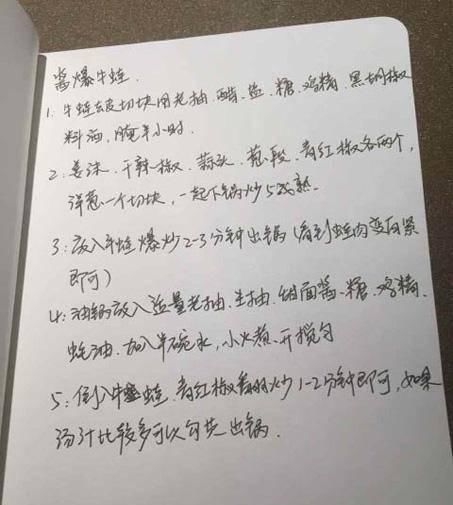 酱爆牛蛙.
1. 牛蛙去皮切块用老抽.醋.盐.糖.鸡精.黑胡椒
料酒.腌半小时.
2: 姜沫.干辣椒.蒜头.葱段.青红椒各两个,
洋葱一个切块,一起下锅炒5成熟.
3: 放入牛蛙爆炒2-3分钟出锅(看到蛙肉变白紧
即可)
4: 油锅放入适量老抽.生抽.甜面酱.糖.鸡精.
蚝油.加入半碗水,小火煮开搅匀
5: 倒入牛蛙.青红椒翻炒1-2分钟即可,如果
汤汁比较多可以勾芡出锅.